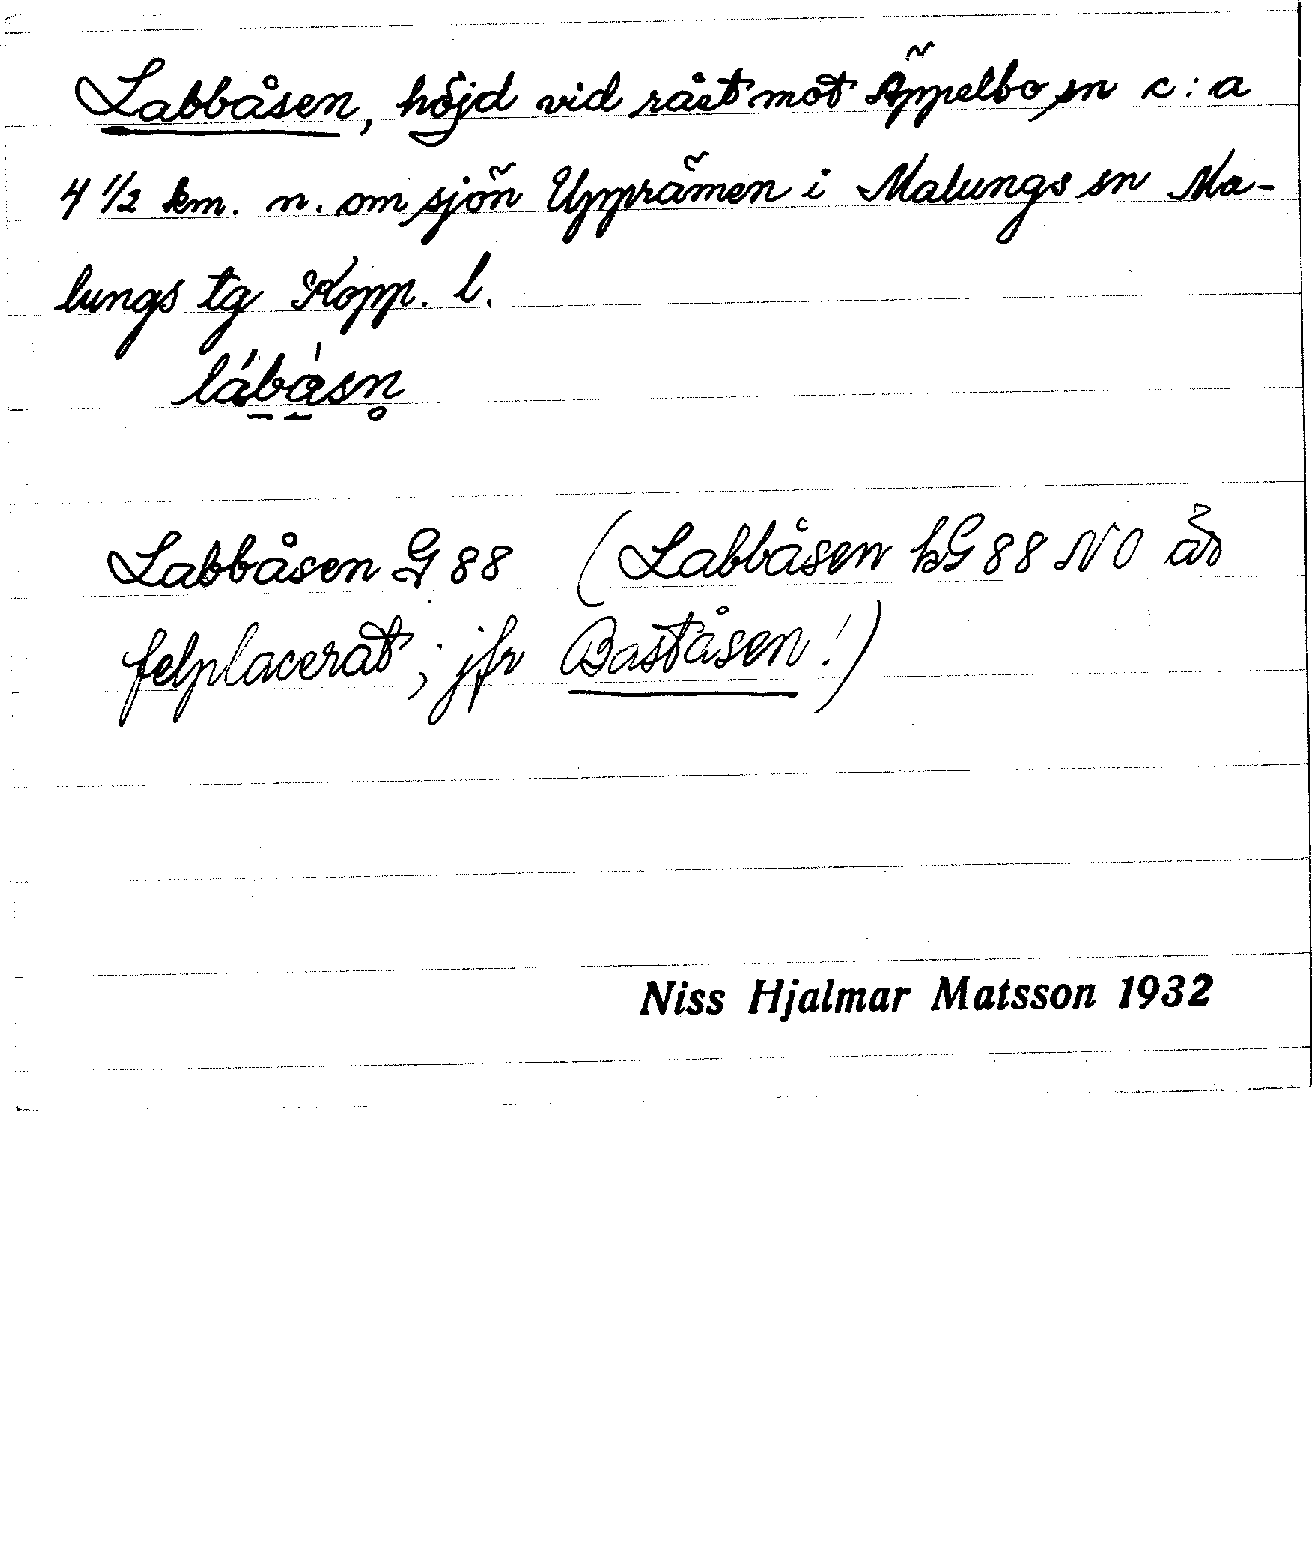 Labbåsen, höjd vid råst mot Äppelbo sn c:a
4 1/2 km. n. om sjön Upprämen i Malungs sn Ma-
lungs tg Kopp. l.
lábàsn̥
Labbåsen G 88 (Labbåsen hG 88 NO är
felplacerat; jfr Baståsen!)
Niss Hjalmar Matsson 1932